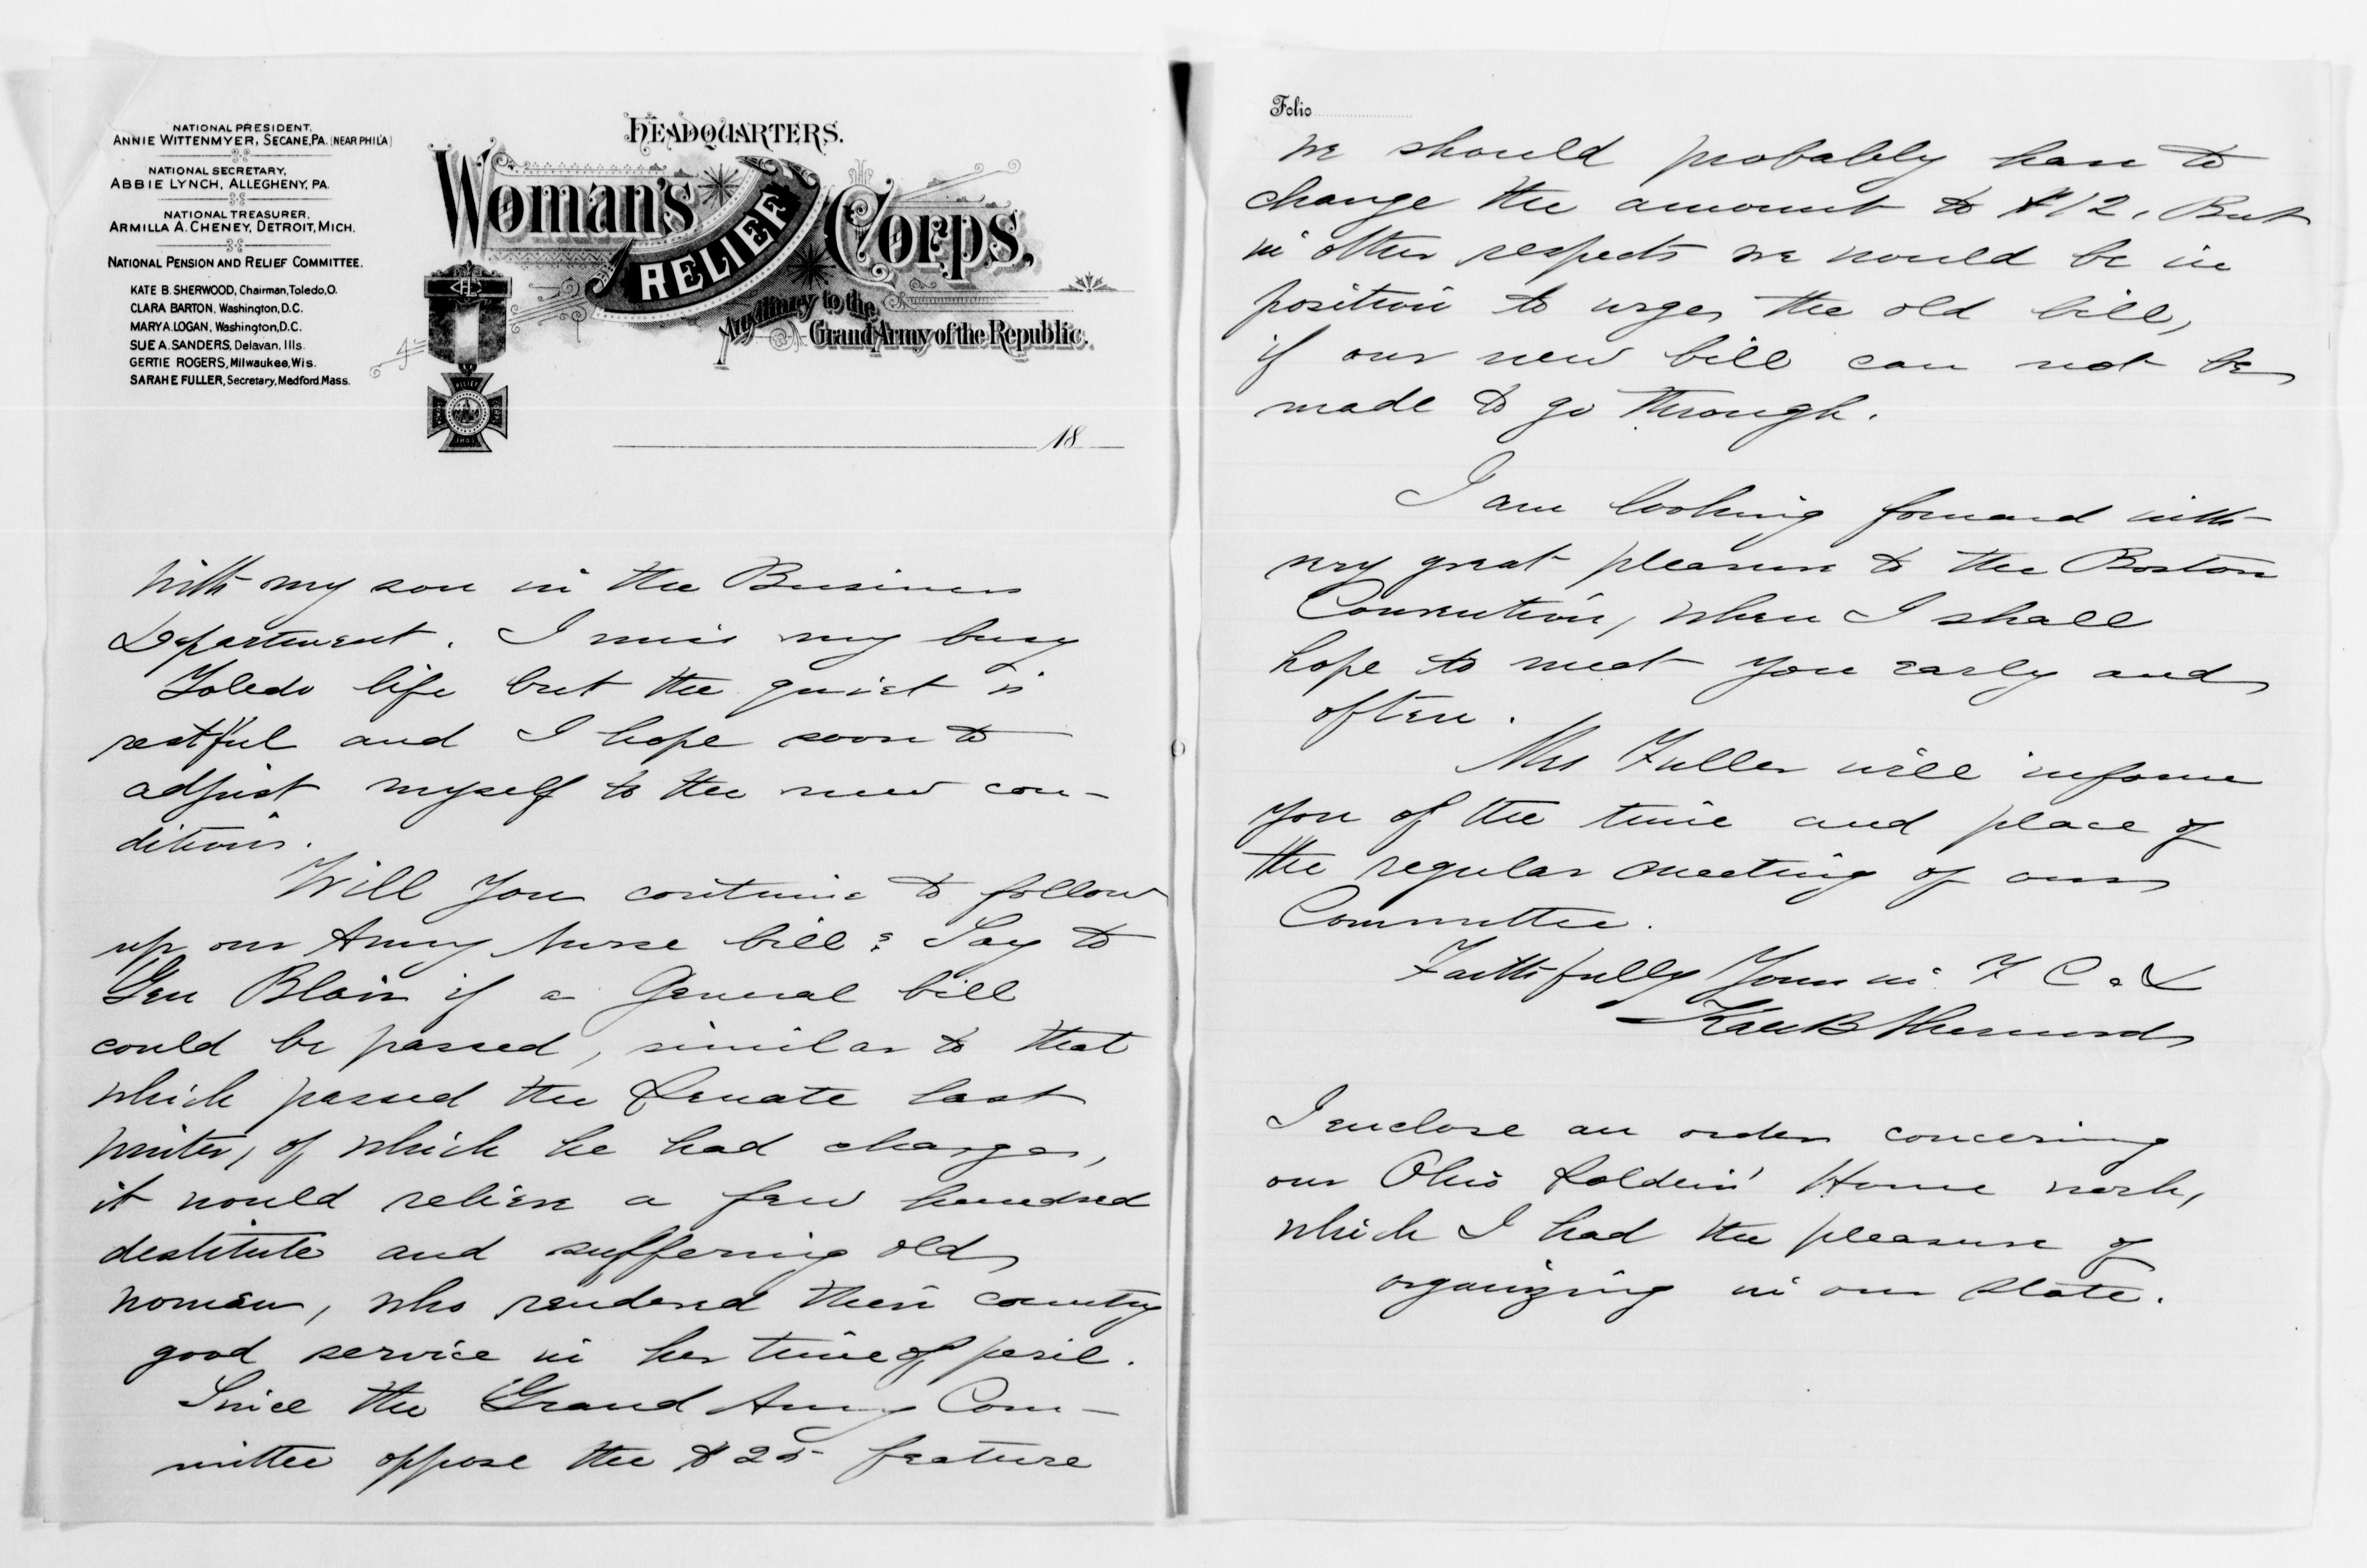 NATIONAL PRESIDENT,
ANNIE WITTENMYER, SECANE, PA. (NEAR PHIL'A)
NATIONAL SECRETARY,
ABBIE LYNCH, ALLEGHENY, PA.
NATIONAL TREASURER,
ARMILLA A. CHENEY, DETROIT, MICH.
NATIONAL PENSION AND RELIEF COMMITTEE.
KATE B. SHERWOOD, Chairman, Toledo, O.
CLARA BARTON, Washington, D.C.
MARY A. LOGAN, Washington, D.C.
SUE A. SANDERS, Delavan, Ills.
GERTIE ROGERS, Milwaukee, Wis.
SARAH E FULLER, Secretary, Medford, Mass.
HEADQUARTERS.
Woman's
RELIEF
Corps,
Auxiliary to the
Grand Army of the Republic.
RELIEF
1883
18
With my son in the Business
Department. I miss my busy
Toledo life but the quiet is
restful and I hope soon to
adjust myself to the new con-
ditions.
Will you continue to follow
up our Army Nurse bill? Say to
Gen Blair if a General bill
could be passed, similar to that
which passed the Senate last
winter, of which he had charge,
it would relieve a few hundred
destitute and suffering old
women, who rendered their country
good service in her time of peril.
Since the Grand Army Com-
mittee oppose the $25 feature
Folio
we should probably have to
change the amount to $12. But
in other respects we would be in
position to urge the old bill,
if our new bill can not be
made to go through.
I am looking forward with
very great pleasure to the Boston
Convention, when I shall
hope to meet you early and
often.
Mrs Fuller will inform
you of the time and place of
the regular meeting of our
Committee.
Faithfully Yours in F C & L
Kate B Sherwood
I enclose an order concering
our Ohio Soldiers' Home work,
which I had the pleasure of
organizing in our state.